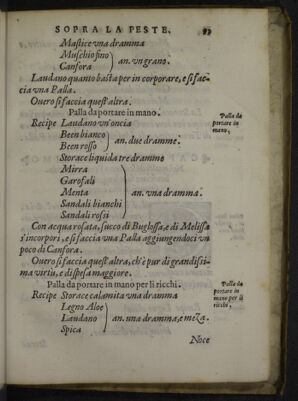 SOPRA LA PESTE. 93
Mastice vna dramma
Muschio fino
Canfora
an. vn grano.
Laudano quanto basta per in corporare, e si fac-
cia vna Palla.
Ouero si faccia quest'altra.
Palla da portare in mano.
Palla da
portare in
mano.
Recipe Laudano vn'oncia
Been bianco
Been rosso
an. due dramme.
Storace liquida tre dramme
Mirra
Garofali
Menta
Sandali bianchi
Sandali rossi
an. vna dramma.
Con acqua rosata, succo di Buglossa, e di Melissa
s'incorpori, e si faccia vna Palla aggiungendoci vn
poco di Canfora.
Ouero si faccia quest'altra, ch'è pur di grandissi-
ma virtu, e di spesa maggiore.
Palla da portare in mano per li ricchi.
Palla da
portare in
mano per li
ricchi.
Recipe Storace calamita vna dramma
Legno Aloe
Laudano
Spica
an. una dramma, e meza.
Noce